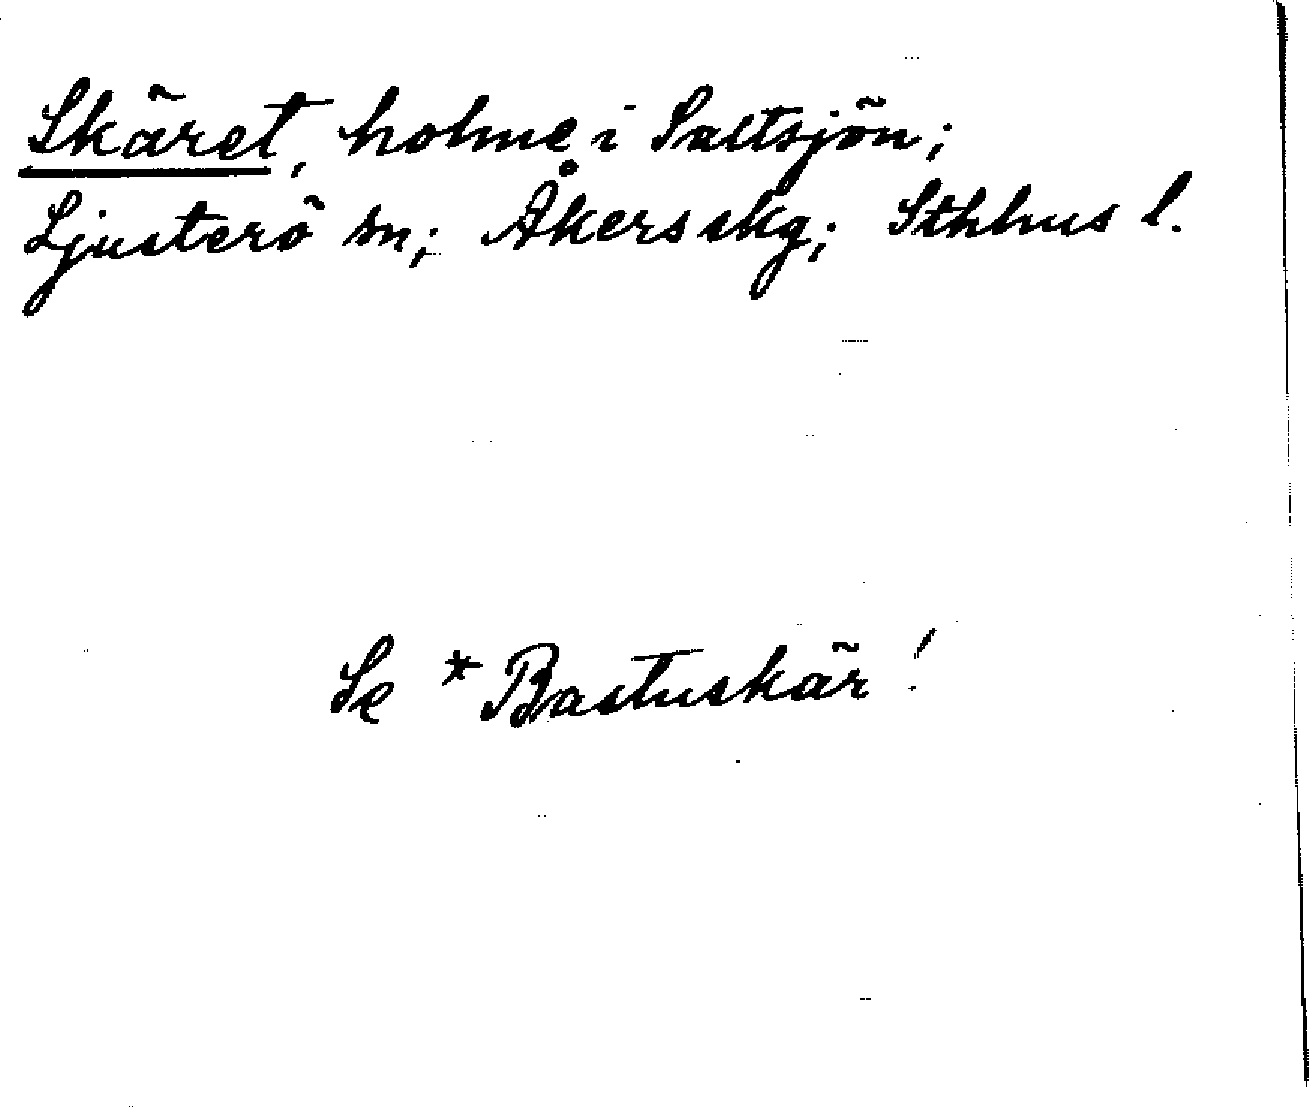 Skäret, holme i Saltsjön;
Ljusterö sn; Åkers skg; Sthlms l.
Se *Bastuskär!